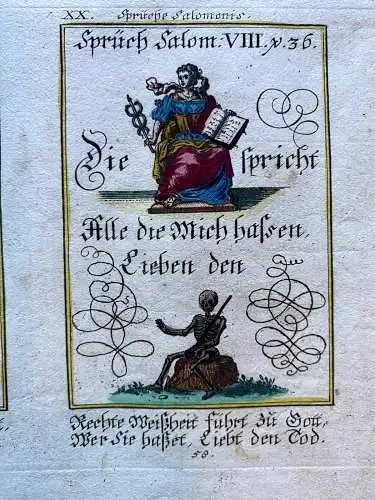 XX. Sprüche Salomonis.
Sprüch Salom. VIII. v. 36.
Die spricht
Alle die Mich haßen,
Lieben den
Rechte Weißheit führt zu Gott,
Wer Sie haßet, Liebt den Tod.
58.